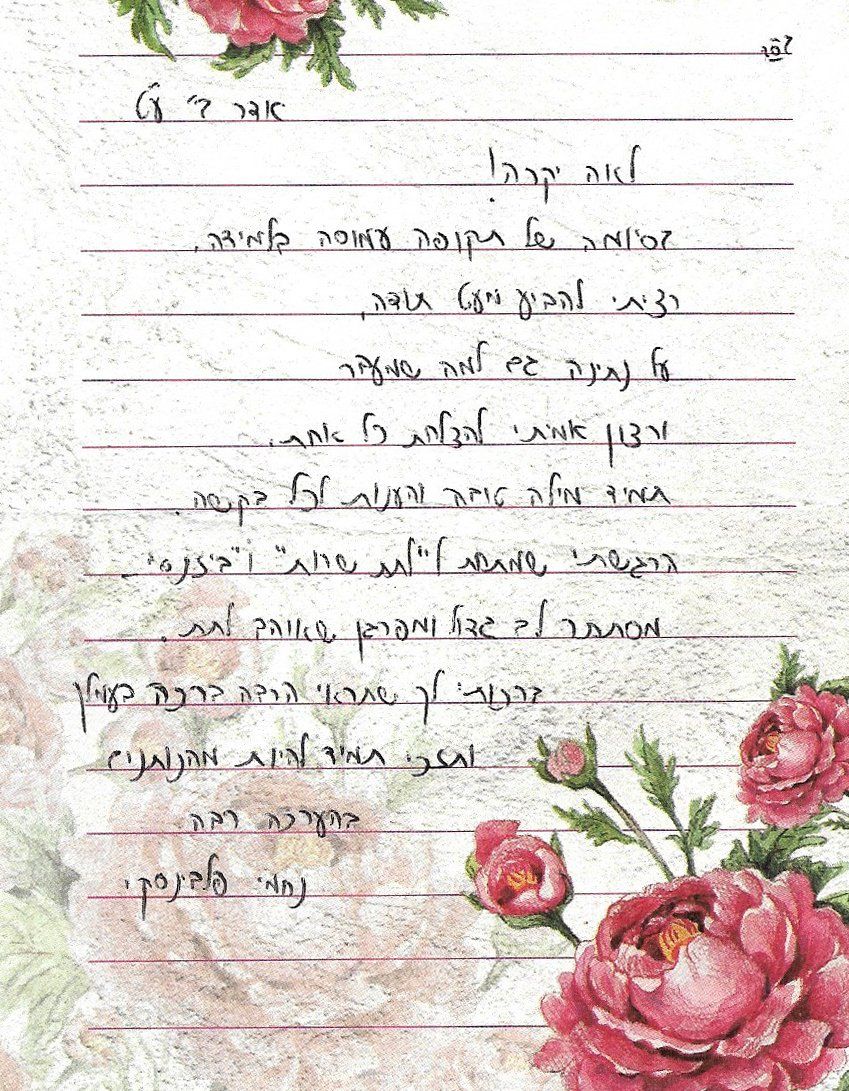 בס"ד
אדר ב' ע"ט
לאה יקרה!
בסיומה של תקופה עמוסה בלמידה,
רציתי להביע מעט תודה,
על נתינה גם למה שמעבר
ורצון אמיתי להצלחת כל אחת.
תמיד מילה טובה והענות לכל בקשה.
הרגשתי שמתחת ל"לתת שרות" ו"ביזנס"-
מסתתר לב גדול ומפרגן שאוהב לתת.
ברכותי לך שתראי הרבה ברכה בעמלך
ותזכי תמיד להיות מהנותנים
בהערכה רבה
נחמי פלבינסקי